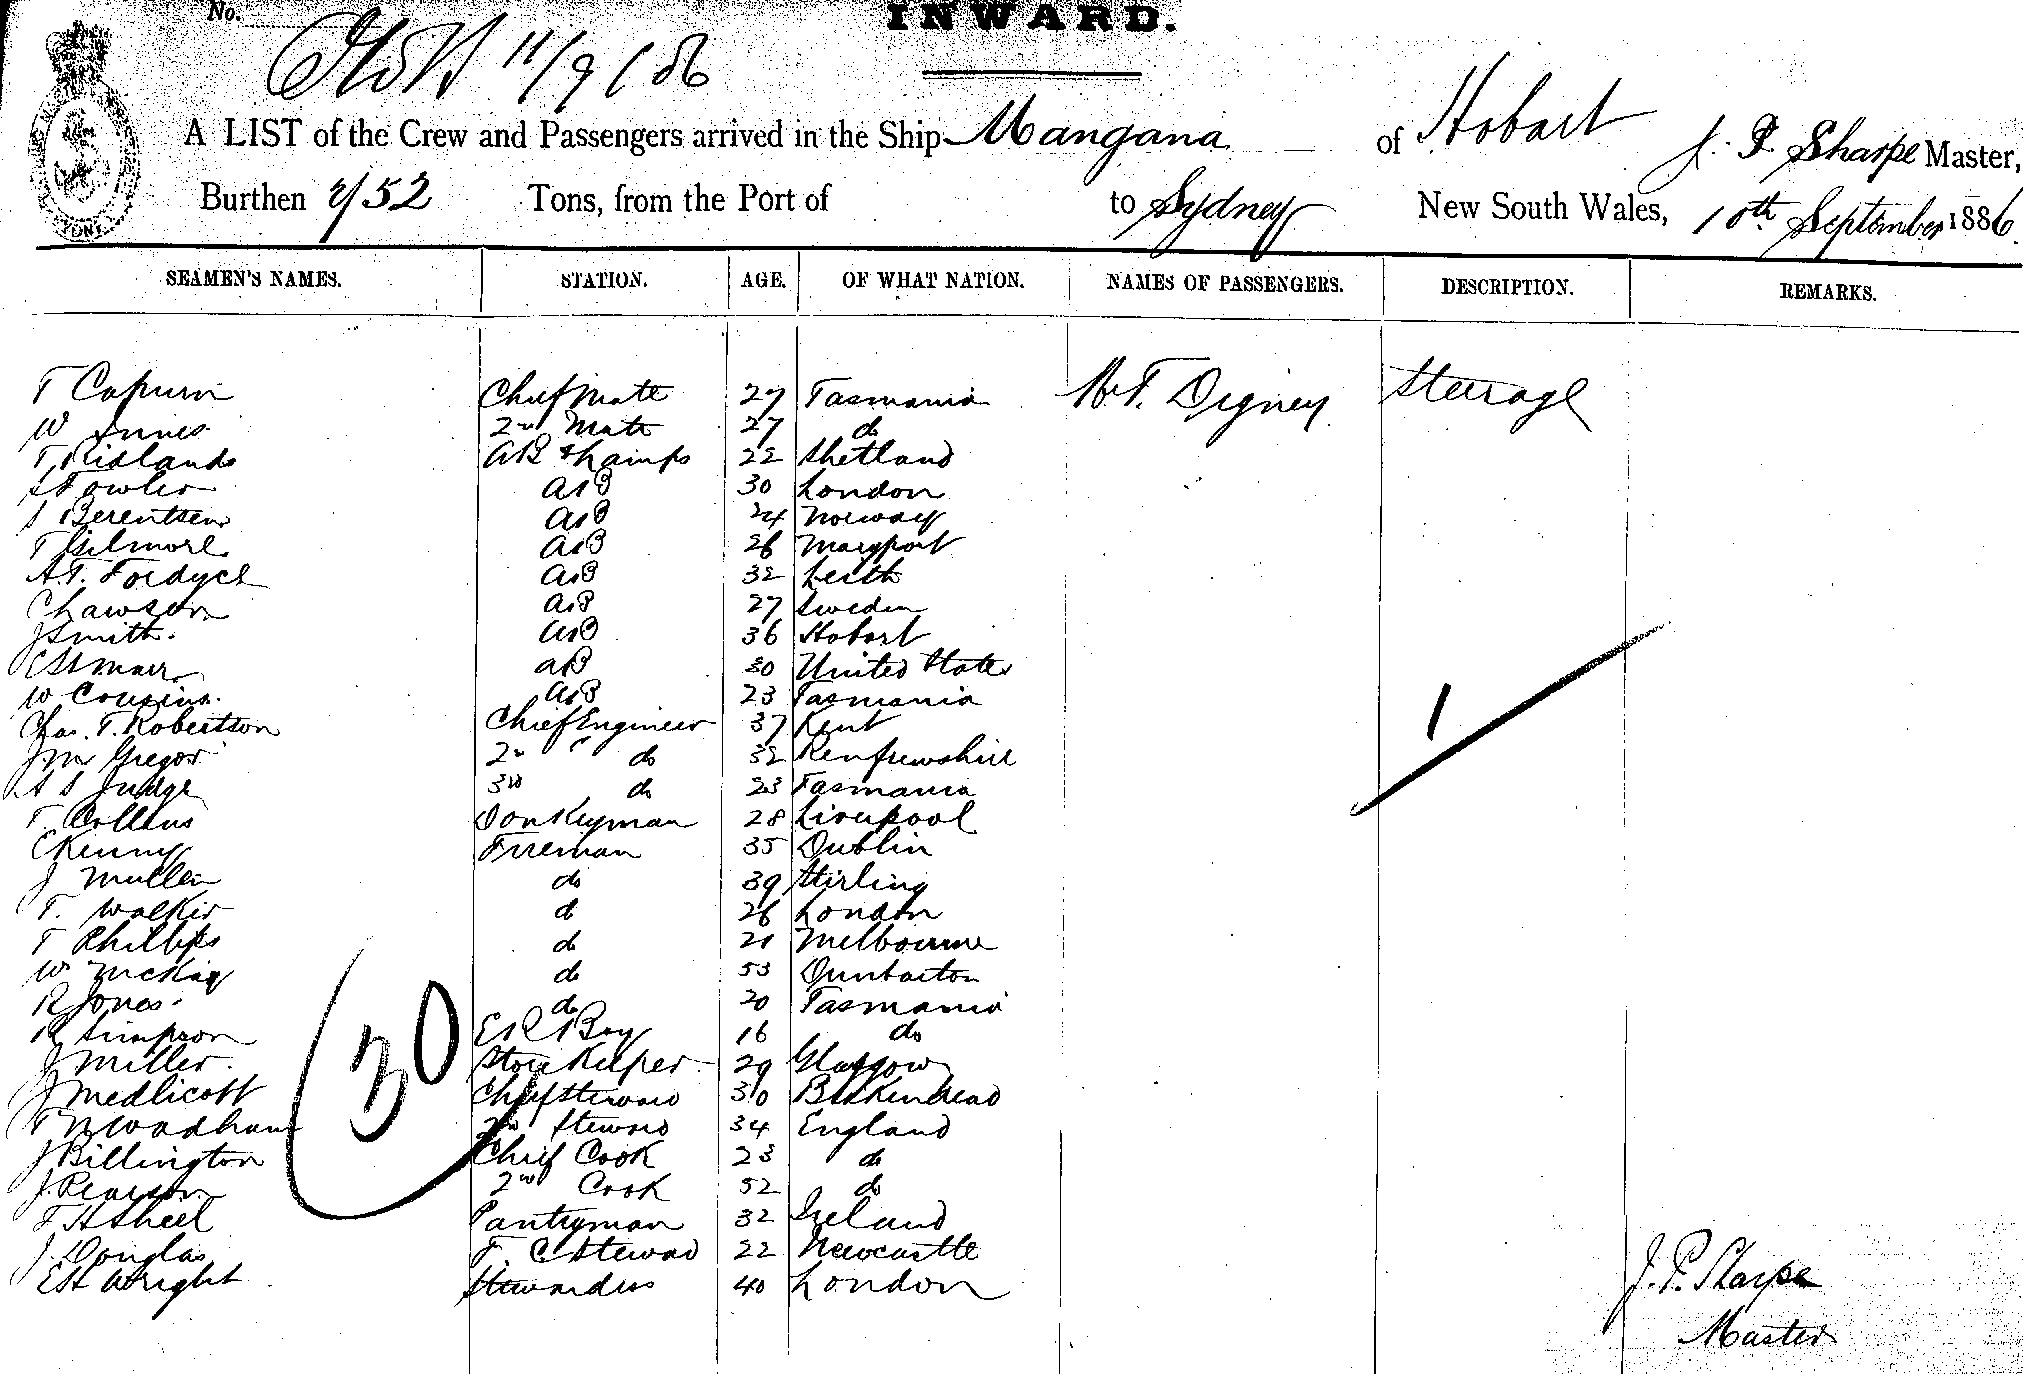 No.
INWARD.
11/9/86
A LIST of the Crew and Passengers arrived in the Ship Mangana of Hobart J. P. Sharpe Master,
Burthen 752 Tons, from the Port of to Sydney New South Wales, 10th September 1886
SEAMEN'S NAMES. STATION. AGE. OF WHAT NATION. NAMES OF PASSENGERS. DESCRIPTION. REMARKS.
T Capurn Chief Mate 27 Tasmania Digney Steerage
W Innes 2nd Mate 27 do
T Ridlands AB & Lamps 22 Shetland
Fowler AB 30 London
J Berentsen AB 24 Norway
T Gilmore AB 26 Maryport
A.T. Fordyce AB 32 Leith
C Lawson AB 27 Sweden
J Smith AB 36 Hobart
AB 30 United States
W Cousins AB 23 Tasmania
Chas. T. Robertson Chief Engineer 37 Kent
J Mc Gregor 2nd do 32 Renfrewshire
A S Judge 3rd do 23 Tasmania
T. Collins Donkeyman 28 Liverpool
C Kenny Fireman 35 Dublin
J Mullen do 39 Stirling
T. Walker do 26 London
T Phillips do 21 Melbourne
W McKay do 53 Dunbarton
R Jones do 20 Tasmania
R Simpson E R Boy 16 do
J Miller Storekeeper 29 Glasgow
J Medlicott Chief Steward 30 Birkenhead
T W Woodham 2nd Steward 34 England
J Billington Chief Cook 23 do
J. Pearson 2nd Cook 52 do
F H Sheel Pantryman 32 Ireland
J. Douglas F. C Steward 22 Newcastle
E H Wright Stewardess 40 London
30
1
J. P. Sharpe
Master